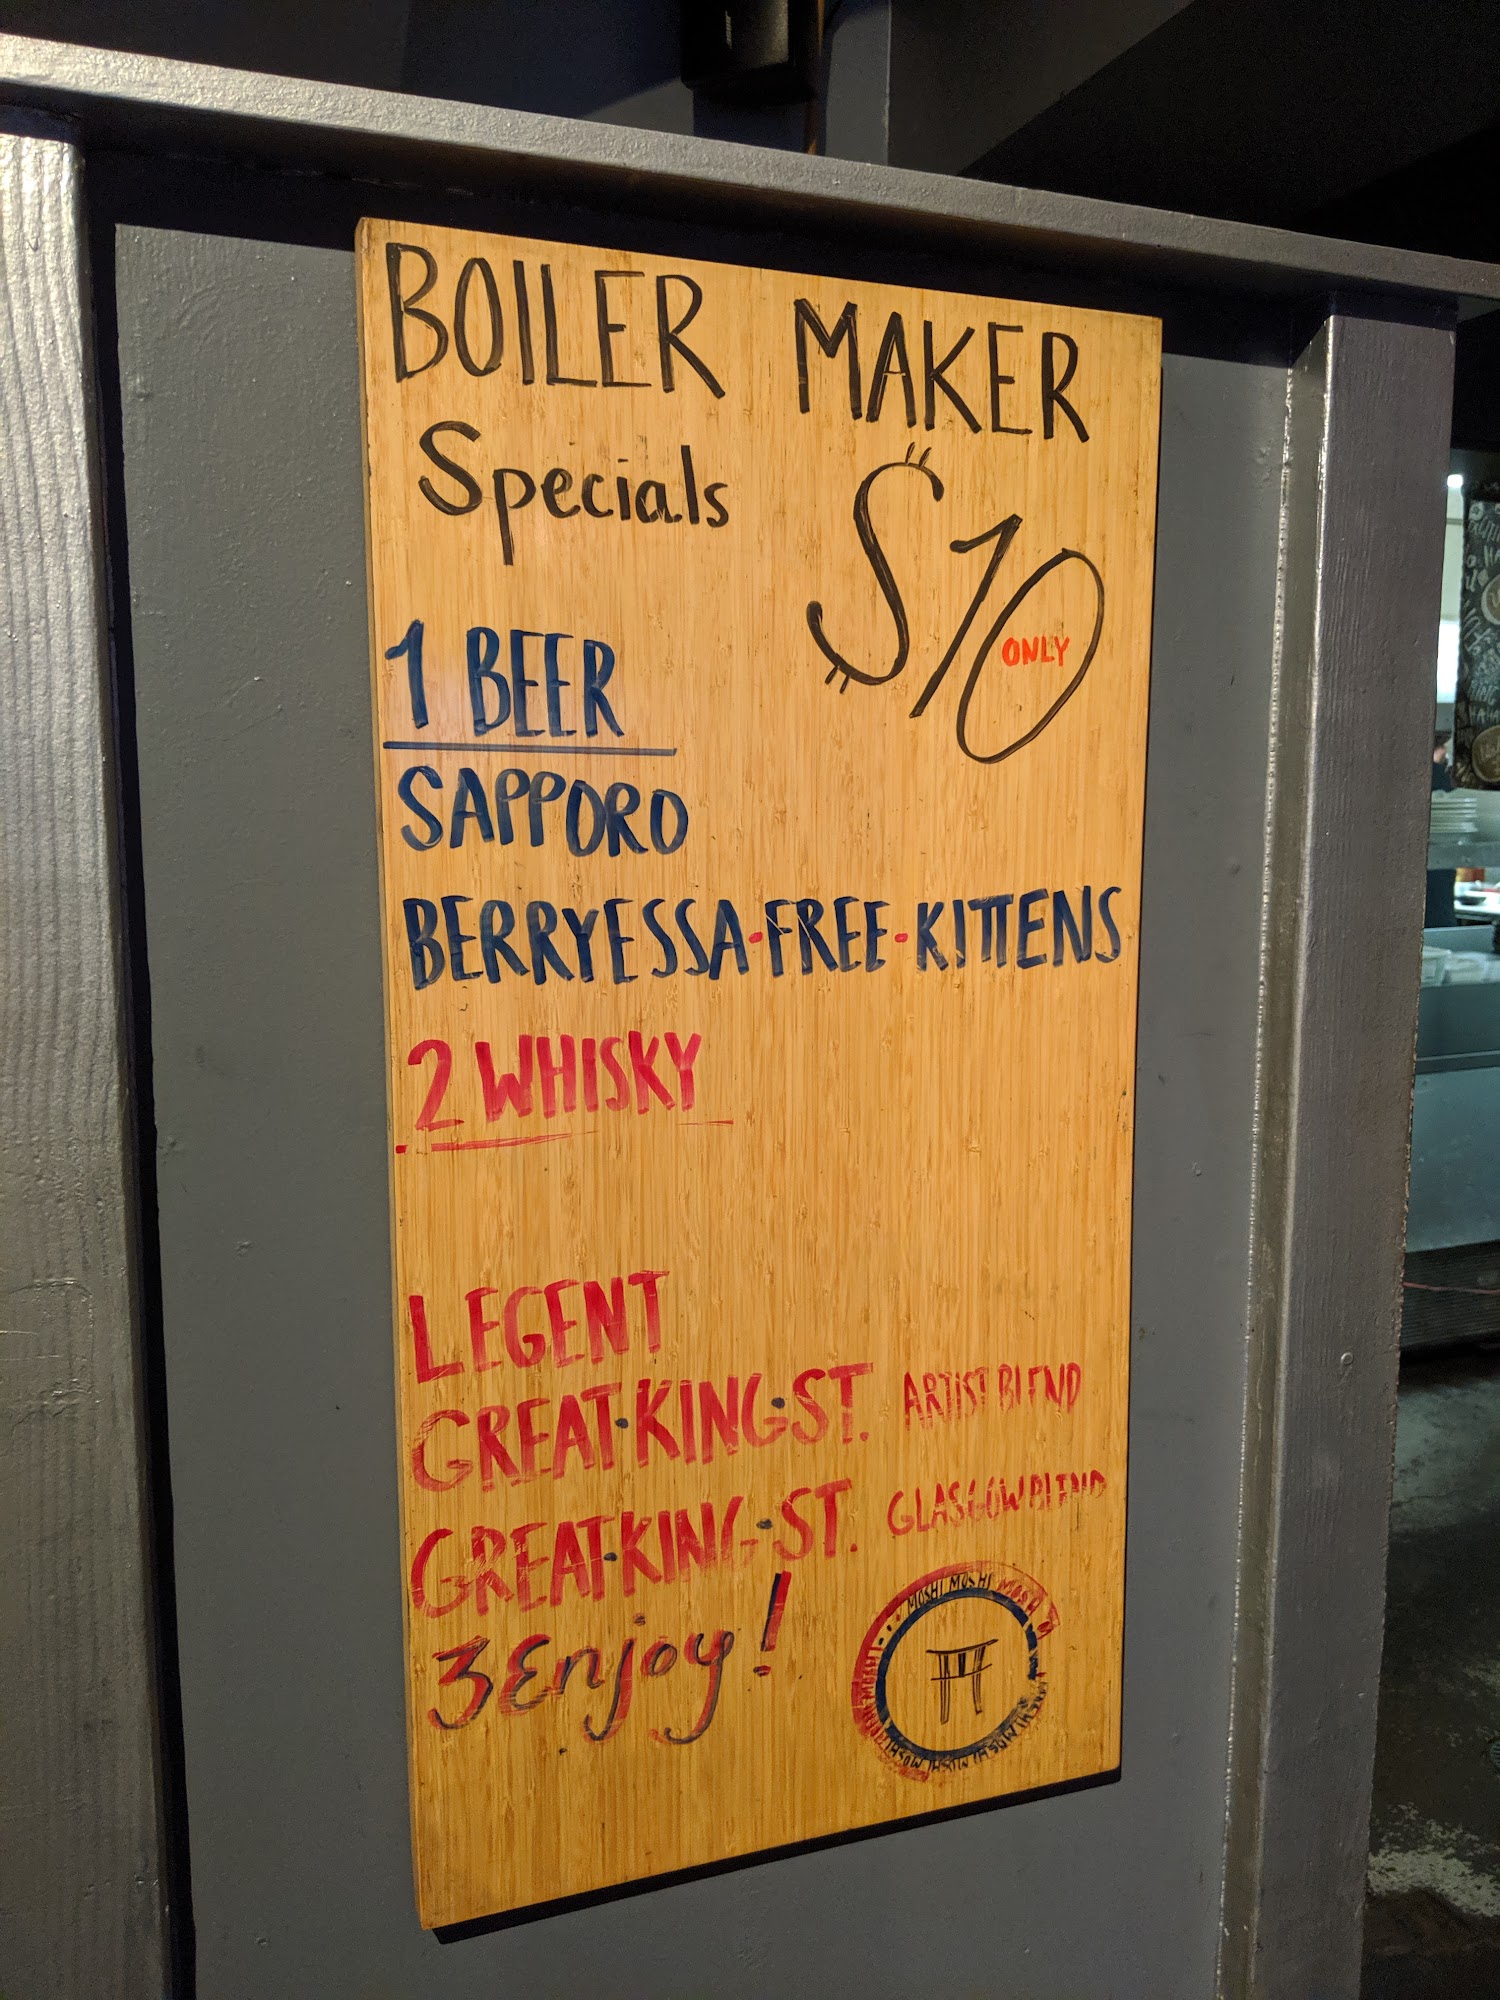 BOILER MAKER
Specials
$10
ONLY
1 BEER
SAPPORO
BERRYESSA·FREE·KITTENS
2 WHISKY
LEGENT
GREAT·KING·ST. ARTIST BLEND
GREAT·KING·ST. GLASGOW BLEND
3 Enjoy!
MOSHI MOSHI MOSHI
MOSHI MOSHI MOSHI